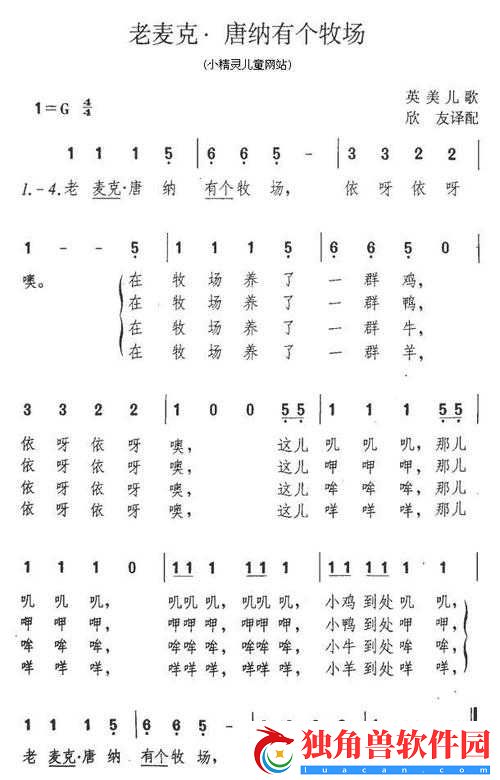 老麦克·唐纳有个牧场
(小精灵儿童网站)
1=G 4/4
英美儿歌
欣 友译配
1 1 1 5 | 6 6 5 - | 3 3 2 2 |
1.-4.老 麦克·唐 纳 有个牧 场， 依 呀 依 呀
1 - - 5 | 1 1 1 5 | 6 6 5 0 |
噢。 在 牧 场 养 了 一 群 鸡，
在 牧 场 养 了 一 群 鸭，
在 牧 场 养 了 一 群 牛，
在 牧 场 养 了 一 群 羊，
3 3 2 2 | 1 0 0 5 5 | 1 1 1 5 5 |
依 呀 依 呀 噢， 这儿 叽 叽 叽，那儿
依 呀 依 呀 噢， 这儿 呷 呷 呷，那儿
依 呀 依 呀 噢， 这儿 哞 哞 哞，那儿
依 呀 依 呀 噢， 这儿 咩 咩 咩，那儿
1 1 1 0 | 11 1 11 1 | 11 11 1 1 |
叽 叽 叽， 叽叽 叽，叽叽 叽， 小鸡 到处 叽 叽，
呷 呷 呷， 呷呷 呷，呷呷 呷， 小鸭 到处 呷 呷，
哞 哞 哞， 哞哞 哞，哞哞 哞， 小牛 到处 哞 哞，
咩 咩 咩， 咩咩 咩，咩咩 咩， 小羊 到处 咩 咩，
1 1 1 5 | 6 6 5
老 麦克·唐 纳 有个牧 场，
独角兽软件园
luacan.com